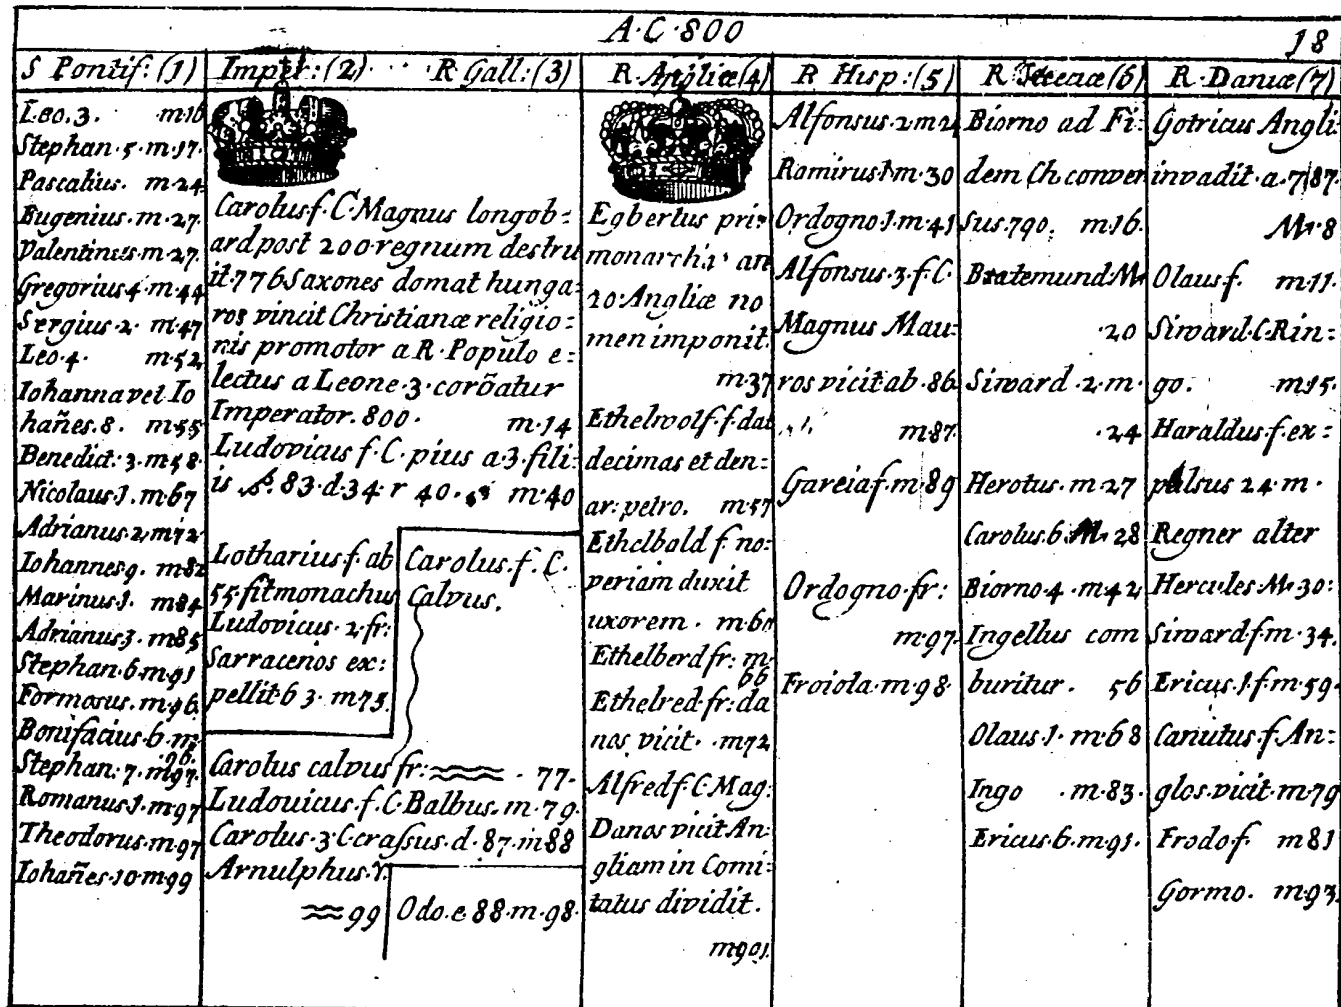 A·C·800
18
S Pontif: (1)
Leo.3. m.16
Stephan.5.m.17.
Pascalius. m.24
Eugenius.m.27.
Valentinus.m.27.
Gregorius 4.m.44
Sergius.2. m.47
Leo.4. m.52
Iohanna vel Io
hañes.8. m.55
Benedict:3.m.58.
Nicolaus.1.m.67
Adrianus.2.m.72
Iohannes.9. m.82
Marinus.1. m.84
Adrianus.3. m.85
Stephan.6.m.91
Formosus.m.96.
Bonifacius.6.m.
.96.
Stephan.7.m.97.
Romanus.1.m.97
Theodorus.m.97
Iohañes.10.m.99
Imper: (2) R Gall: (3)
Carolus f. C. Magnus longob=
ard post 200 regnum destru
it.776 Saxones domat hunga=
ros vincit Christianæ religio=
nis promotor a R. Populo e=
lectus a Leone.3. corõatur
Imperator.800. m.14
Ludovicus f. C. pius a.3.fili=
is 83.d.34.r 40. m.40
Lotharius f. ab
55 fit monachus
Ludovicus.2.fr:
Sarracenos ex:
pellit 63. m.75.
Carolus.f. C.
Calvus.
Carolus calvus fr: .77.
Ludovicus.f. C. Balbus.m.79.
Carolus.3. C. crassus.d.87.m.88
Arnulphus.r.
99
Odo.e.88.m.98.
R. Angliæ (4)
Egbertus pri=
monarcha an
20 Angliæ no
men imponit.
m.37
Ethelwolf.f.dat
decimas et den=
ar: petro. m.57
Ethelbald f. no=
veriam duxit
uxorem. m.60
Ethelberd fr: m.
66
Ethelred.fr:da
nos vicit. m.72
Alfred f. C. Mag:
Danos vicit An=
gliam in Comi=
tatus dividit.
m.901.
R Hisp: (5)
Alfonsus.2.m.24
Romirus.1.m.30
Ordogno.1.m.41
Alfonsus.3.f. C.
Magnus Mau=
ros vicit ab.86
m.87.
Gareia f.m.89
Ordogno.fr:
m.97.
Froiola.m.98.
R. Sueciæ (6)
Biorno ad Fi=
dem Ch. conver
sus.790. m.16.
Bratemund M.
.20
Siward.2.m.
.24
Herotus.m.27
Carolus.6.M.28
Biorno.4.m.42
Ingellus com
buritur. 56
Olaus.1.m.68
Ingo .m.83.
Ericus.6.m.91.
R. Daniæ (7)
Gotricus Angli
invadit.a.787.
M.8
Olaus f. m.11.
Siward. C. Rin=
go. m.15.
Haraldus.f.ex=
pulsus 24.m.
Regner alter
Hercules.M.30:
Siward f.m.34.
Ericus.1.f.m.59.
Canutus.f.An=
glos.vicit.m.79
Frodo f. m.81
Gormo. m.93.